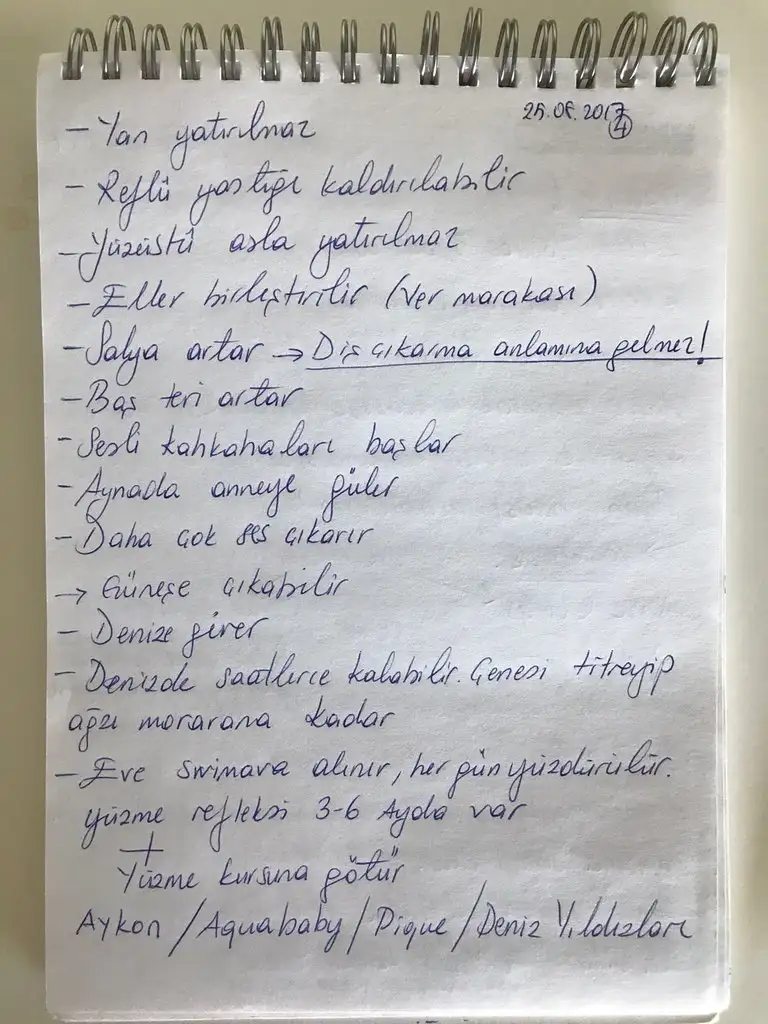 25.08.2017
④
- Yan yatırılmaz
- Reflü yastığı kaldırılabilir
- Yüzüstü asla yatırılmaz
- Eller birleştirilir (Ver marakası)
- Salya artar → Diş çıkarma anlamına gelmez!
- Baş teri artar
- Sesli kahkahaları başlar
- Aynada anneye güler
- Daha çok ses çıkarır
→ Güneşe çıkabilir
- Denize girer
- Denizde saatlerce kalabilir. Çenesi titreyip
ağzı morarana kadar
- Eve swimava alınır, her gün yüzdürülür.
yüzme refleksi 3-6 Ayda var
+
Yüzme kursuna götür
Aykon / Aquababy / Pique / Deniz Yıldızları